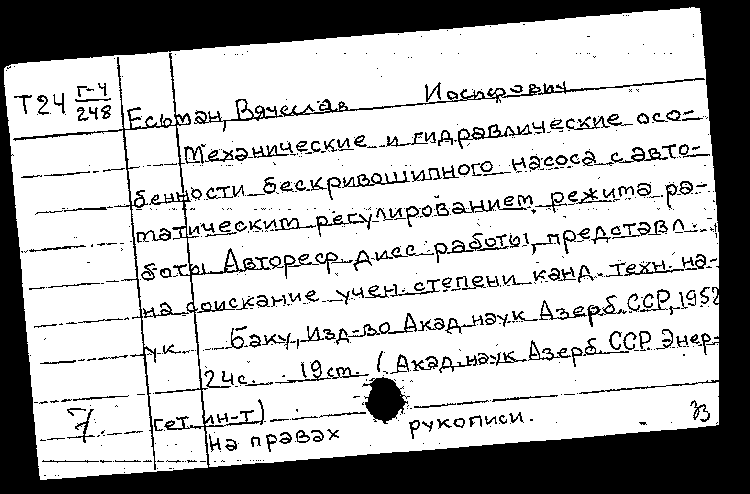 Т24 Г-4/248
Есьман, Вячеслав Иосифович
Механические и гидравлические осо-
бенности бескривошипного насоса с авто-
матическим регулированием режима ра-
боты Автореф. дисс. работы, представл.
на соискание учен. степени канд. техн. на-
ук. Баку, Изд-во Акад. наук Азерб. ССР, 1952
24с. 19см. (Акад. наук Азерб. ССР Энер-
гет. ин-т)
на правах рукописи.